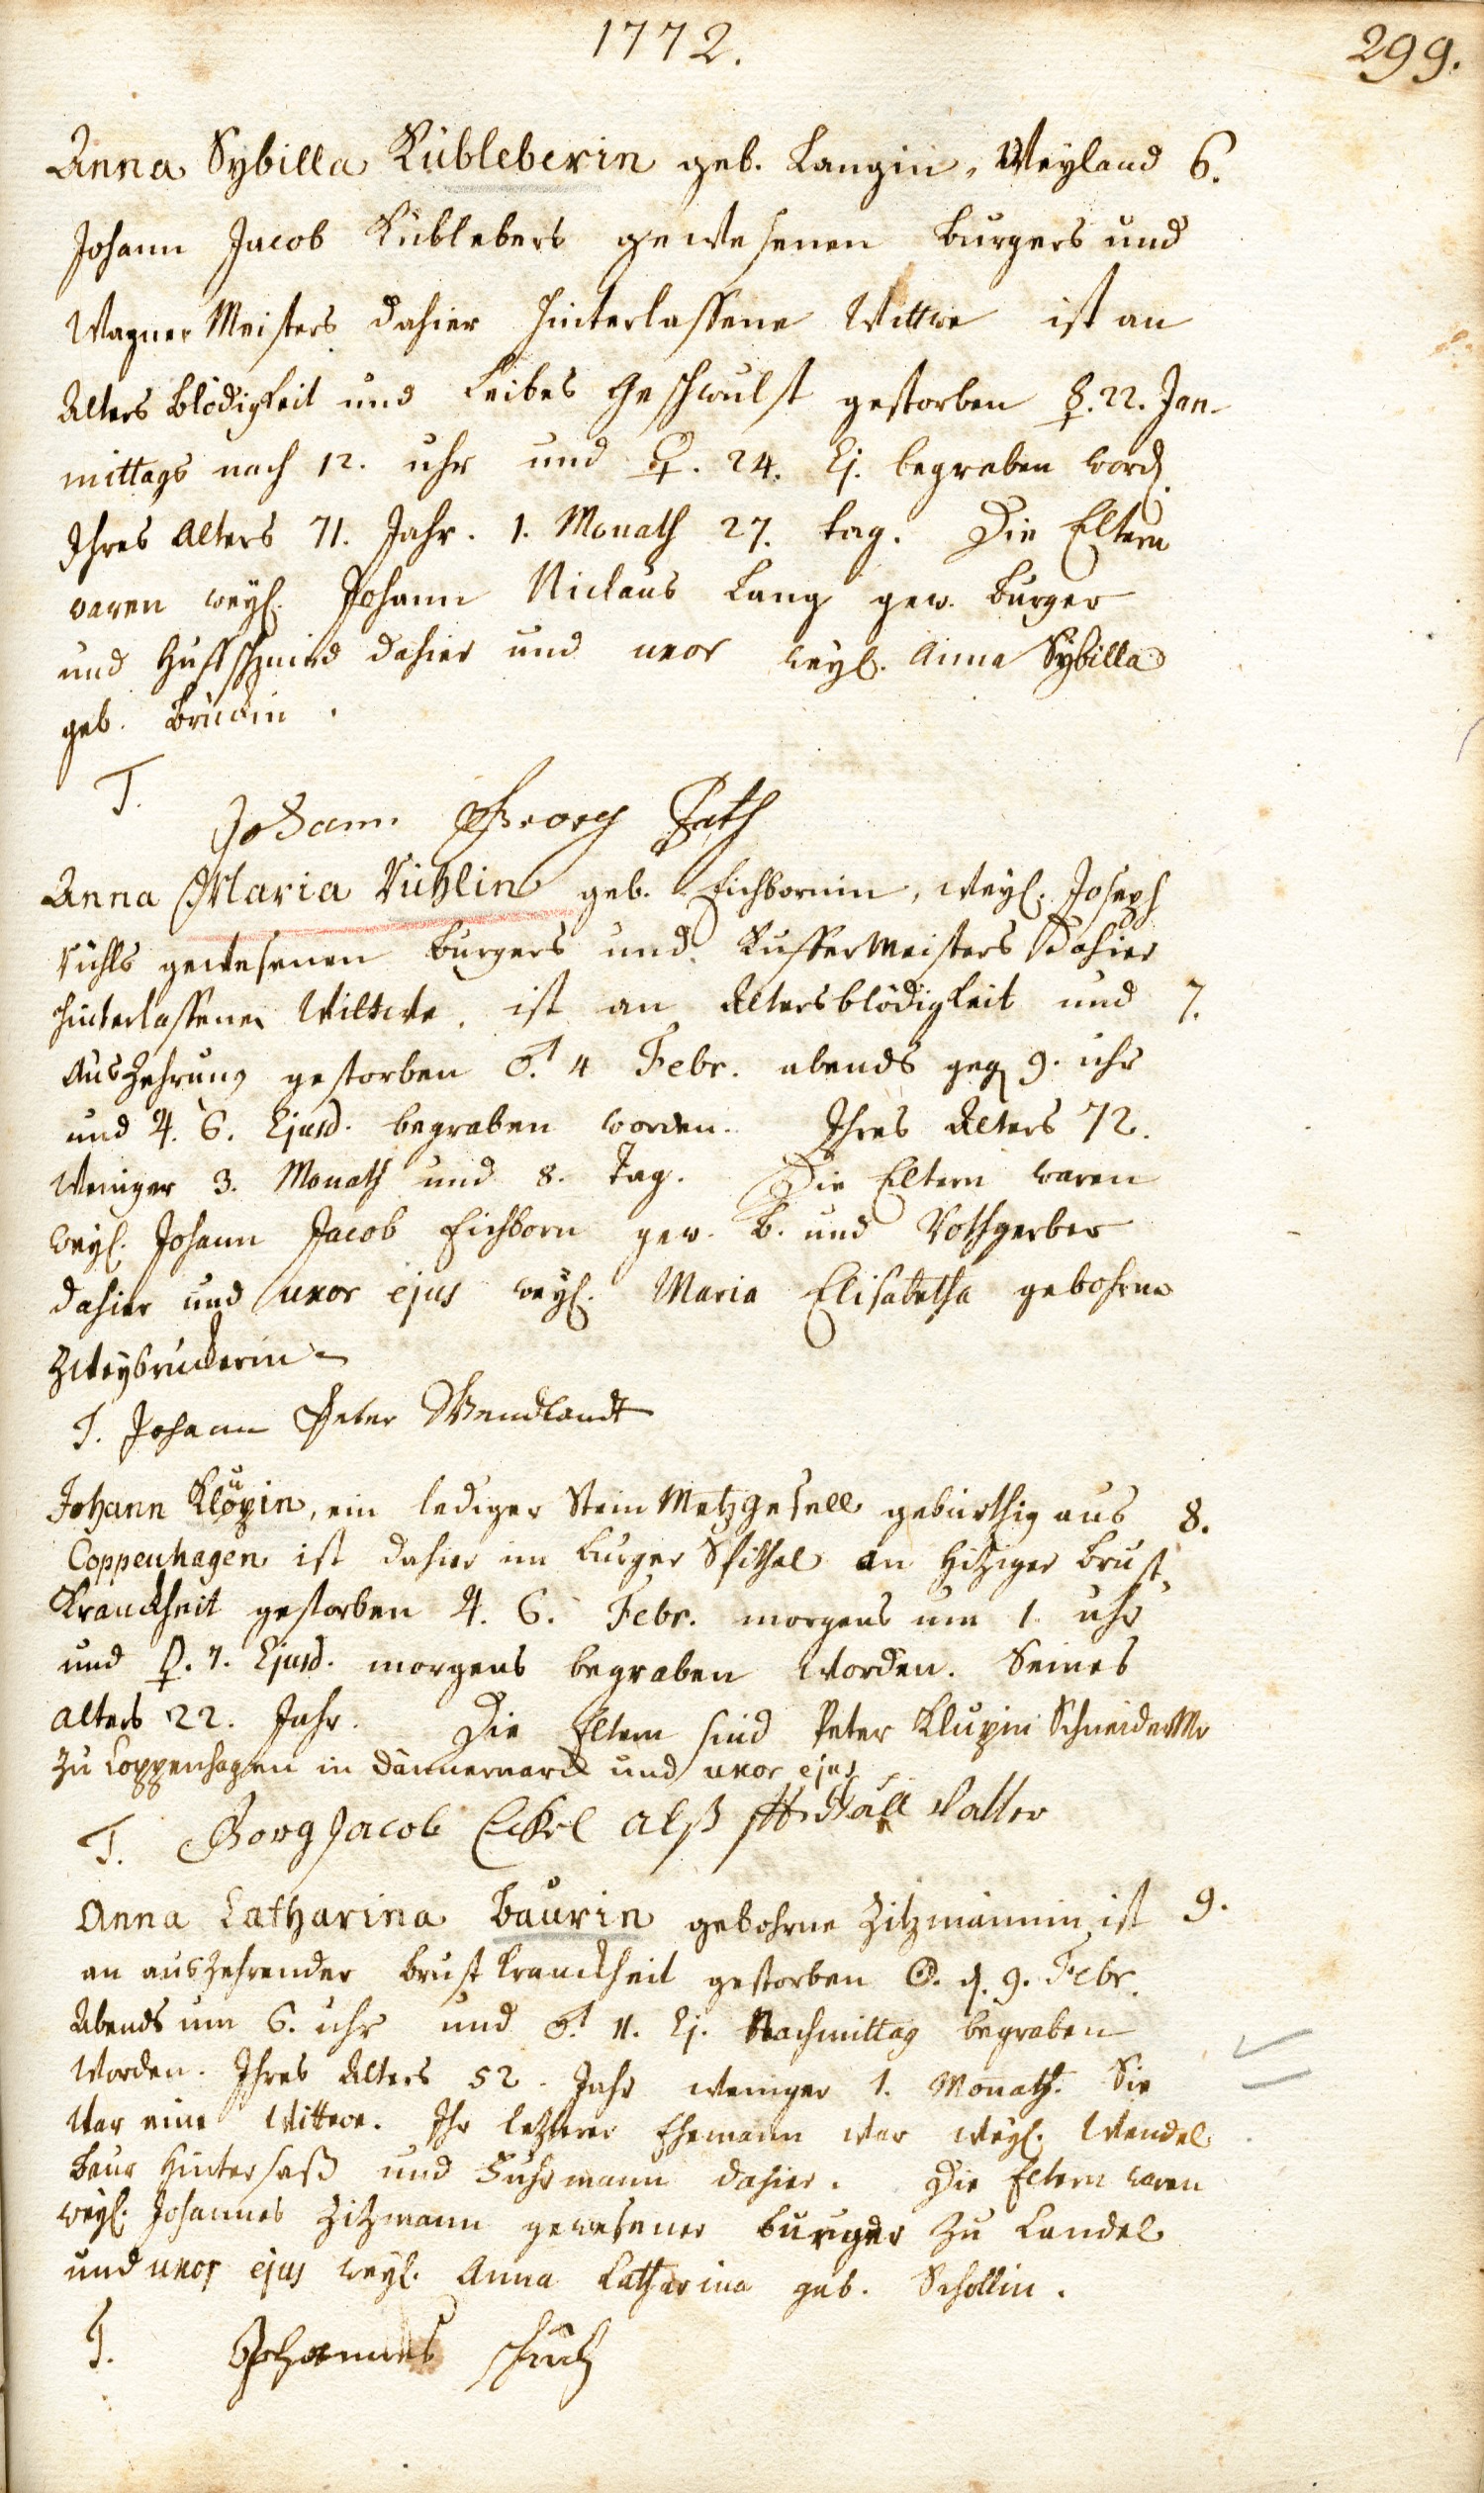 1772.
299.
Anna Sybilla Kübleberin geb. Langin, Weyland 6.
Johann Jacob Küblebers gewesenen burgers und
Wagner Meisters dahier hinterlassene Wittwe ist an
Alters blödigkeit und Leibes Geschwulst gestorben ☿. 22. Jan.
mittags nach 12. uhr und ♀. 24. Ej. begraben word.
Ihres Alters 71. Jahr. 1. Monath 27. tag. Die Eltern
waren weyl. Johann Niclaus Lang gew. burger
und Huffschmied dahier und uxor weyl. Anna Sybilla
geb.
T. Johann Georg
Anna Maria Rühlin geb. Eichbornin, weyl. Joseph
Rühls gewesenen burgers und Kuffermeisters dahier
hinterlassene Wittwe, ist an Altersblödigkeit und 7.
Auszehrung gestorben ♂. 4 Febr. abends geg 9. uhr
und ♃. 6. Ejusd. begraben worden. Ihres Alters 72.
weniger 3. Monath und 8. Tag. Die Eltern waren
weyl. Johann Jacob Eichborn gew. b. und Rothgerber
dahier und uxor ejus weyl. Maria Elisabetha gebohrne
Zweybruckerin.
T. Johann Peter Wendlandt
Johann Klöpin, ein lediger Stein Metzgesell gebürthig aus 8.
Coppenhagen ist dahier im burger Spithal an hitziger Brust,
Kranckheit gestorben ♃. 6. Febr. morgens um 1. uhr
und ♀. 7. Ejusd. morgens begraben worden. Seines
alters 22. Jahr. Die Eltern sind Peter Klupin Schneider Mr
zu Coppenhagen in Dännemarck und uxor ejus
T. Georg Jacob Eckel alß Vatter
Anna Catharina Baurin gebohrne Zitzmännin ist 9.
an auszehrender Brust kranckheit gestorben ☉. d. 9. Febr.
Abends um 6. uhr und ♂. 11. Ej. Nachmittag begraben
worden. Ihres Alters 52. Jahr weniger 1. Monath. Sie
war eine Wittwe. Ihr letzterer Ehemann war weyl. Wendel
Baur Hintersaß und Fuhrmann dahier. Die Eltern waren
weyl. Johannes Zitzmann gewesener burger zu Landel
und uxor ejus weyl. Anna Catharina geb. Schollin.
T. Johannes